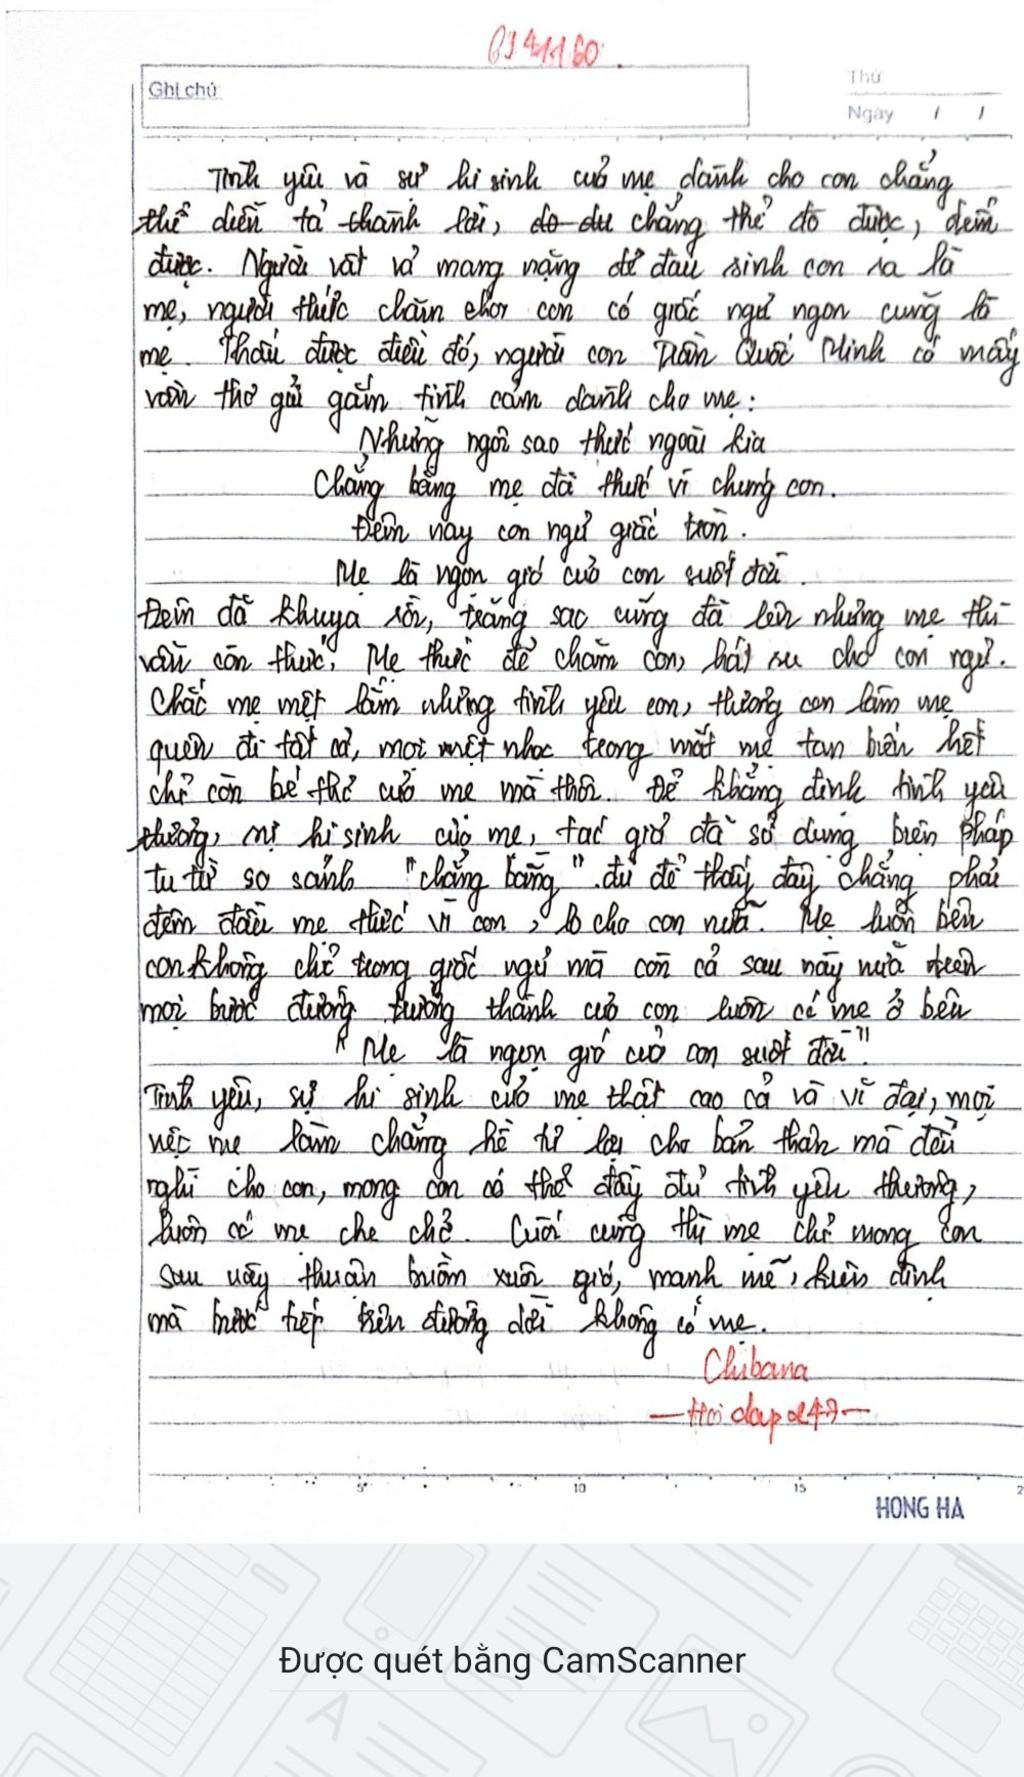 6941160.
Ghi chú:
Thứ
Ngày / /
Tình yêu và sự hi sinh của mẹ dành cho con chẳng
thể diễn tả thành lời, do du chẳng thể đo được, đếm
được. Người vất vả mang nặng đẻ đau sinh con ra là
mẹ, người thức chăm cho con có giấc ngủ ngon cũng là
mẹ. Thấu được điều đó, người con Trần Quốc Minh có mấy
vần thơ gửi gắm tình cảm dành cho mẹ:
Những ngôi sao thức ngoài kia
Chẳng bằng mẹ đã thức vì chúng con.
Đêm nay con ngủ giấc tròn.
Mẹ là ngọn gió của con suốt đời.
Đêm đã khuya rồi, trăng sao cũng đã lên nhưng mẹ thì
vẫn còn thức. Mẹ thức để chăm con, hát ru cho con ngủ.
Chắc mẹ mệt lắm nhưng tình yêu con, thương con làm mẹ
quên đi tất cả, mọi mệt nhọc trong mắt mẹ tan biến hết
chỉ còn bé thơ của mẹ mà thôi. Để khẳng định tình yêu
thương, sự hi sinh của mẹ, tác giả đã sử dụng biện pháp
tu từ so sánh "chẳng bằng" đủ để thấy đấy chẳng phải
đêm đầu mẹ thức vì con, lo cho con nữa. Mẹ luôn bên
con không chỉ trong giấc ngủ mà còn cả sau này nữa trên
mọi bước đường trưởng thành của con luôn có mẹ ở bên
"Mẹ là ngọn gió của con suốt đời".
Tình yêu, sự hi sinh của mẹ thật cao cả và vĩ đại, mọi
việc mẹ làm chẳng hề tư lợi cho bản thân mà đều
nghĩ cho con, mong con có thể đầy đủ tình yêu thương,
luôn có mẹ che chở. Cuối cùng thì mẹ chỉ mong con
sau này thuận buồm xuôi gió, mạnh mẽ, kiên định
mà bước tiếp trên đường dời không có mẹ.
Chibana
— Hoi dap 247 —
5 10 15 2
HONG HA
Được quét bằng CamScanner